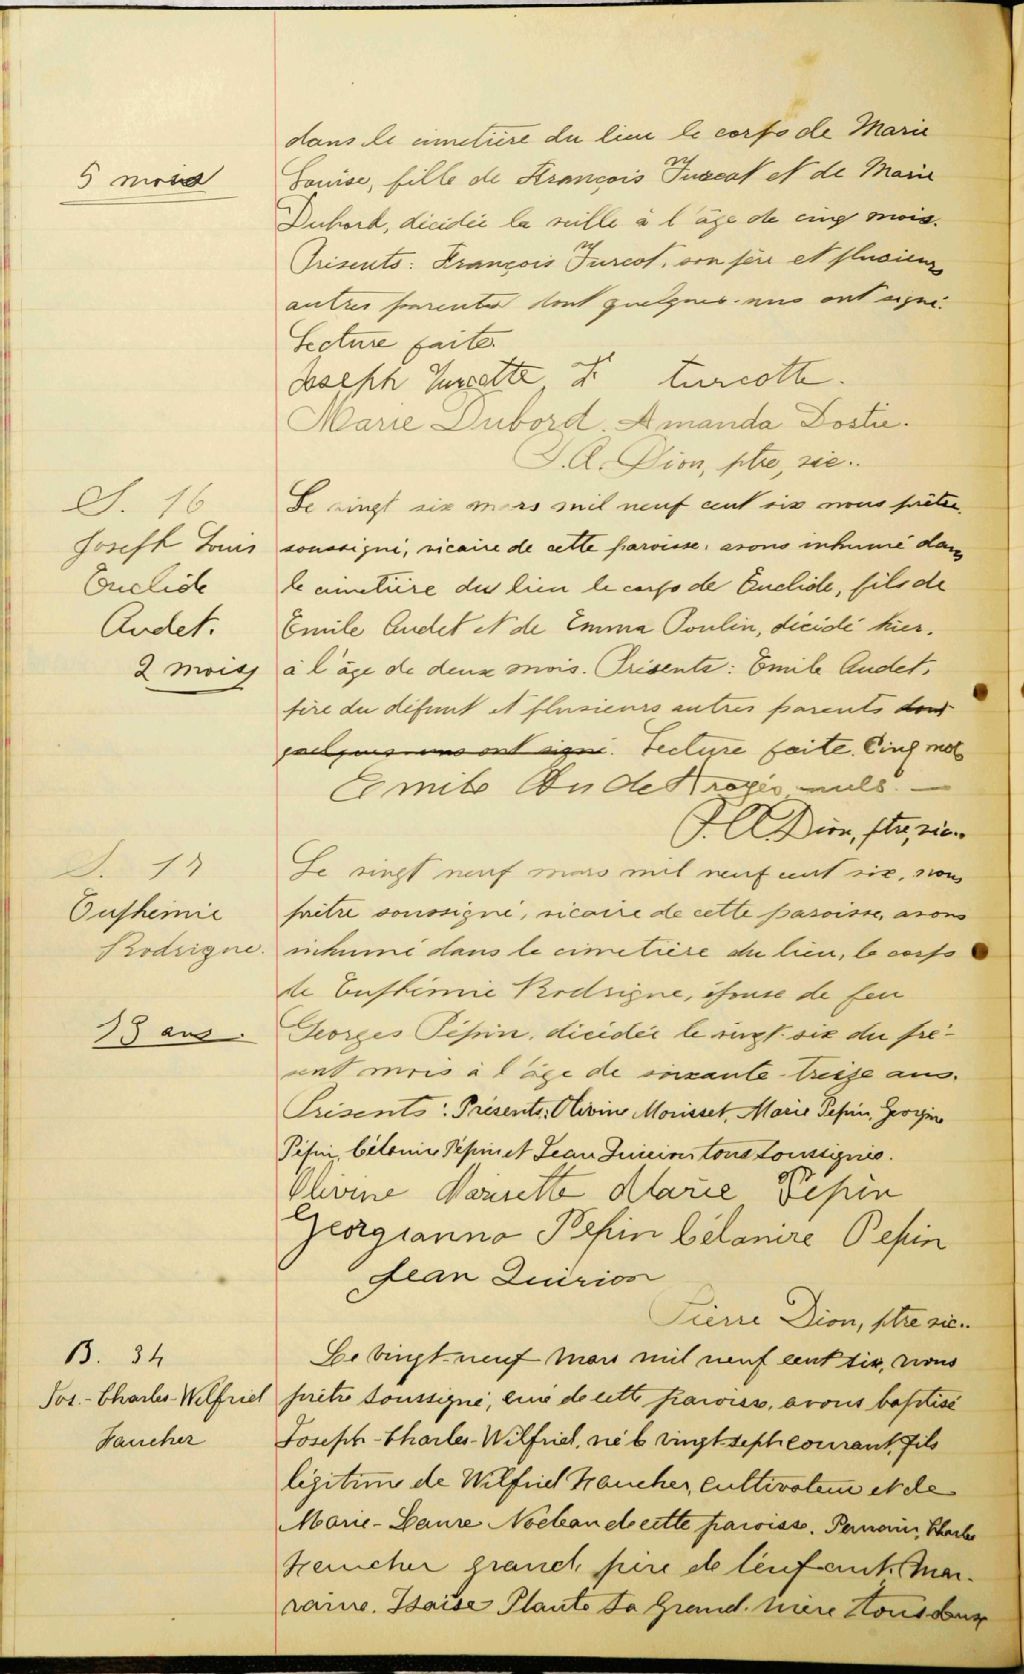 dans le cimetière du lieu le corps de Marie
5 mois
Louise, fille de François Turcot et de Marie
Dubord, décédée la veille à l'âge de cinq mois.
Présents: François Turcot, son père et plusieurs
autres parents dont quelques-uns ont signé.
Lecture faite.
Joseph Turcotte, F turcotte.
Marie Dubord. Amanda Dostie.
P.A. Dion, ptre, vic..
S. 16
Le vingt six mars mil neuf cent six nous prêtre
Joseph Louis
soussigné, vicaire de cette paroisse, avons inhumé dans
Euclide
le cimetière du lieu le corps de Euclide, fils de
Audet.
Emile Audet et de Emma Poulin, décédé hier,
2 mois
à l'âge de deux mois. Présents: Emile Audet,
père du défunt et plusieurs autres parents dont
quelques-uns ont signé. Lecture faite. Cinq mots
Emile Audet rayés nuls. —
P.A. Dion, ptre, vic..
S. 17
Le vingt neuf mars mil neuf cent six, nous
Euphémie
prêtre soussigné, vicaire de cette paroisse, avons
Rodrigue.
inhumé dans le cimetière du lieu, le corps
de Euphémie Rodrigue, épouse de feu
73 ans.
Georges Pépin, décédée le vingt-six du pré-
sent mois à l'âge de soixante-treize ans.
Présents: Présents: Olivine Morisset, Marie Pepin, Georgine
Pépin, Célanire Pépin et Jean Quirion tous soussignés.
Olivine Morisette Marie Pépin
Georgianna Pepin Célanire Pepin
Jean Quirion
Pierre Dion, ptre vic..
B. 34
Le vingt-neuf mars mil neuf cent six, nous
Jos.-Charles-Wilfried
prêtre soussigné, curé de cette paroisse, avons baptisé
Faucher
Joseph-Charles-Wilfried, né le vingt-sept courant, fils
légitime de Wilfried Faucher, cultivateur et de
Marie-Laure Nadeau de cette paroisse. Parrain, Charles
Faucher grand père de l'enfant, Mar-
raine. Isaïse Plante sa grand-mère tous deux